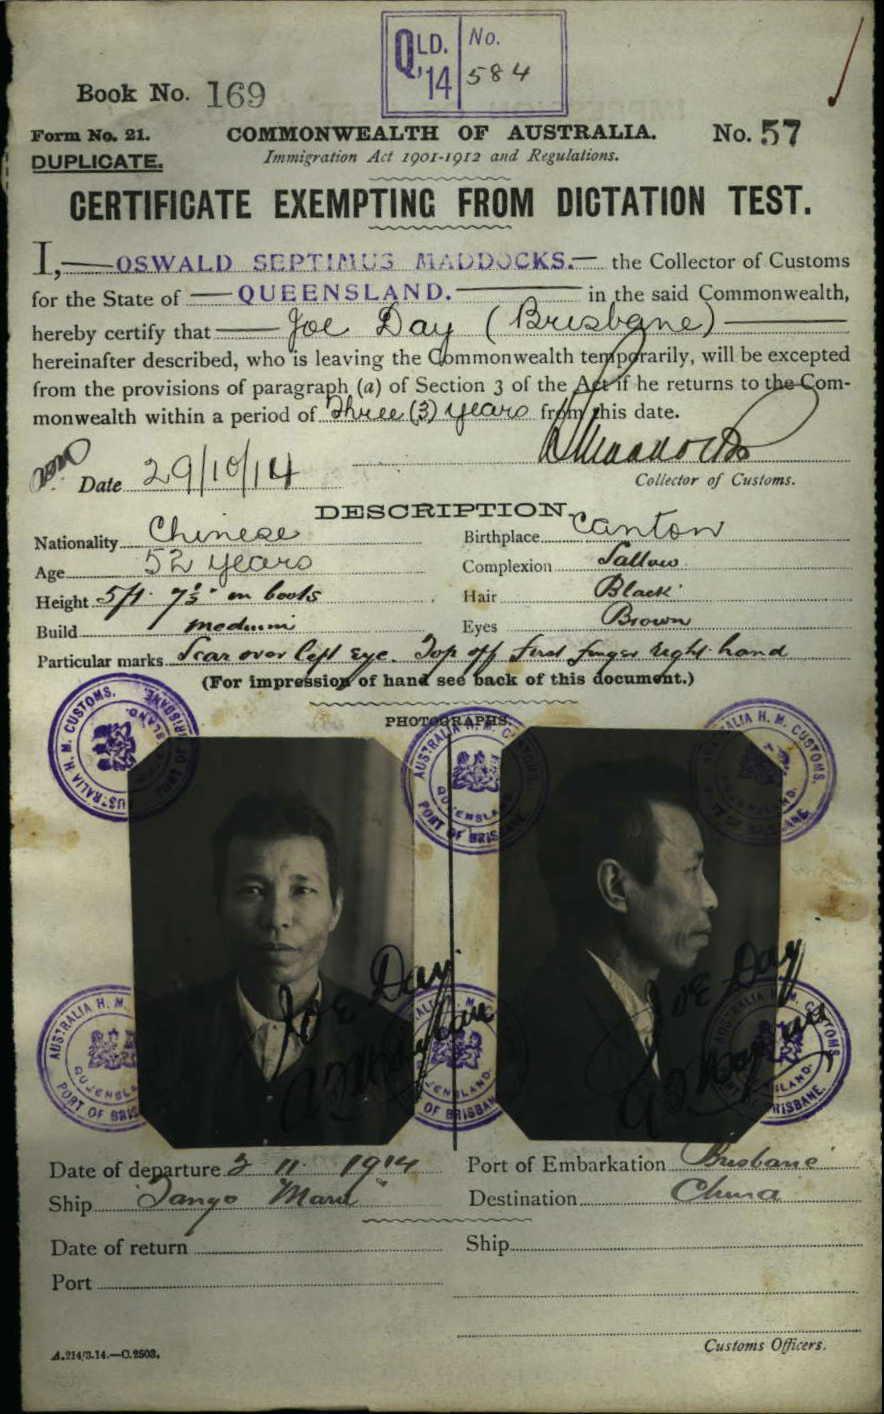 QLD. No.
'14 584
Book No. 169
Form No. 21.
COMMONWEALTH OF AUSTRALIA.
No. 57
DUPLICATE.
Immigration Act 1901-1912 and Regulations.
CERTIFICATE EXEMPTING FROM DICTATION TEST.
I, OSWALD SEPTIMUS MADDOCKS. the Collector of Customs
for the State of QUEENSLAND. in the said Commonwealth,
hereby certify that Joe Day (Brisbane)
hereinafter described, who is leaving the Commonwealth temporarily, will be excepted
from the provisions of paragraph (a) of Section 3 of the Act if he returns to the Com-
monwealth within a period of Three (3) years from this date.
Date 29/10/14
Collector of Customs.
DESCRIPTION.
Nationality Chinese Birthplace Canton
Age 52 years Complexion Sallow
Height 5ft. 7½" in boots Hair Black
Build medium Eyes Brown
Particular marks Scar over left eye. Top off first finger right hand
(For impression of hand see back of this document.)
PHOTOGRAPHS.
AUSTRALIA H. M. CUSTOMS. QUEENSLAND. PORT OF BRISBANE.
AUSTRALIA H. M. C QUEENSLA PORT OF BRISBANE.
ALIA H. M. CUSTOMS.
Joe Day
Joe Day
AUSTRALIA H. M. QUEENSL PORT OF BRIS
ALIA H. M. QUEENSLAND. OF BRISBAN
AUSTRALIA H. M. CUSTOMS. SLAND. BRISBANE.
Date of departure 3 11 1914 Port of Embarkation Brisbane
Ship "Tango Maru" Destination China
Date of return Ship
Port
Customs Officers.
A.214/3.14.—C.2503.